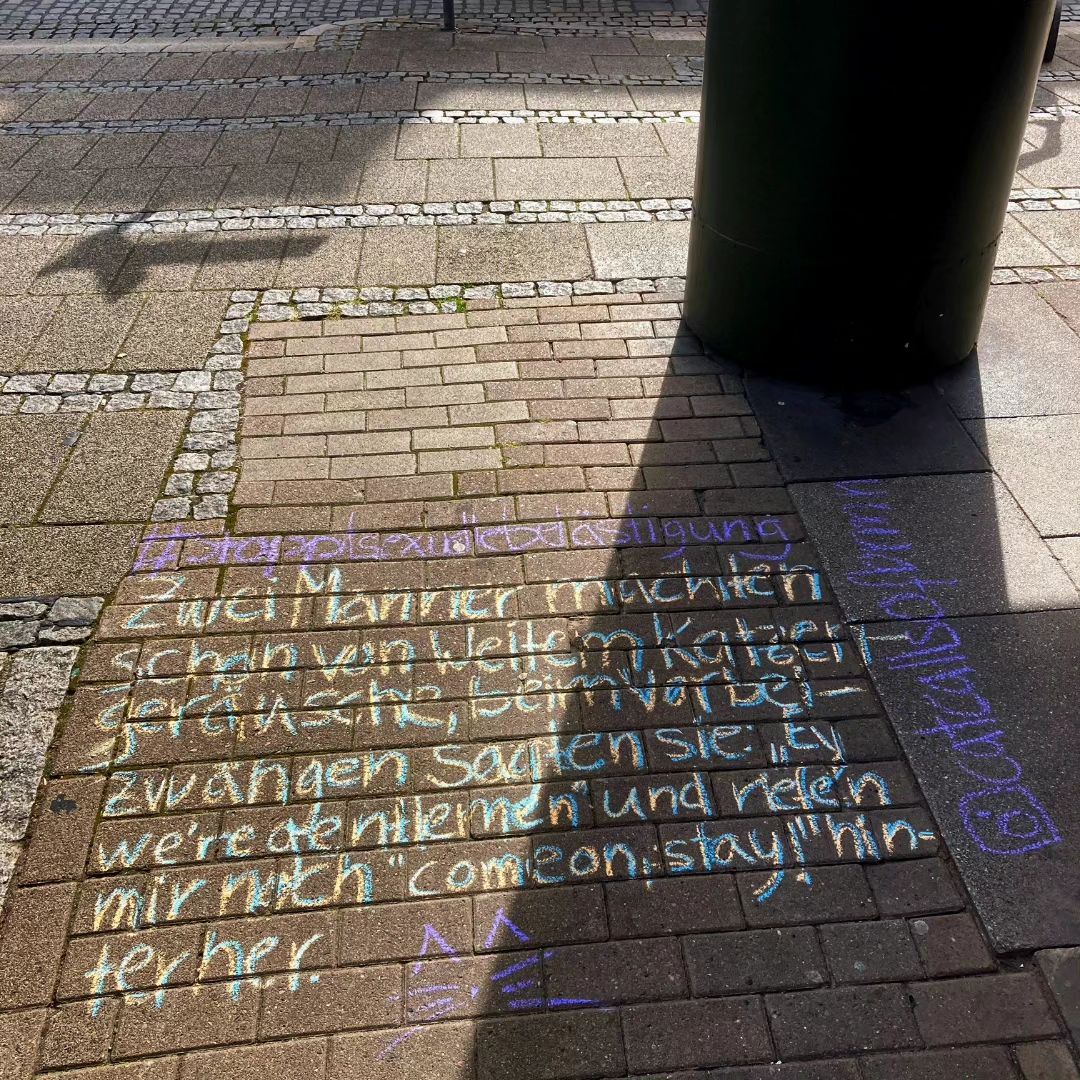 #stopptsexuellebelästigung
Zwei Männer machten
schon von Weitem Katzen
geräusche, beim Vorbei-
zwängen sagten sie: „Ey
we're gentlemen" und riefen
mir noch "come on, stay!" hin-
terher.